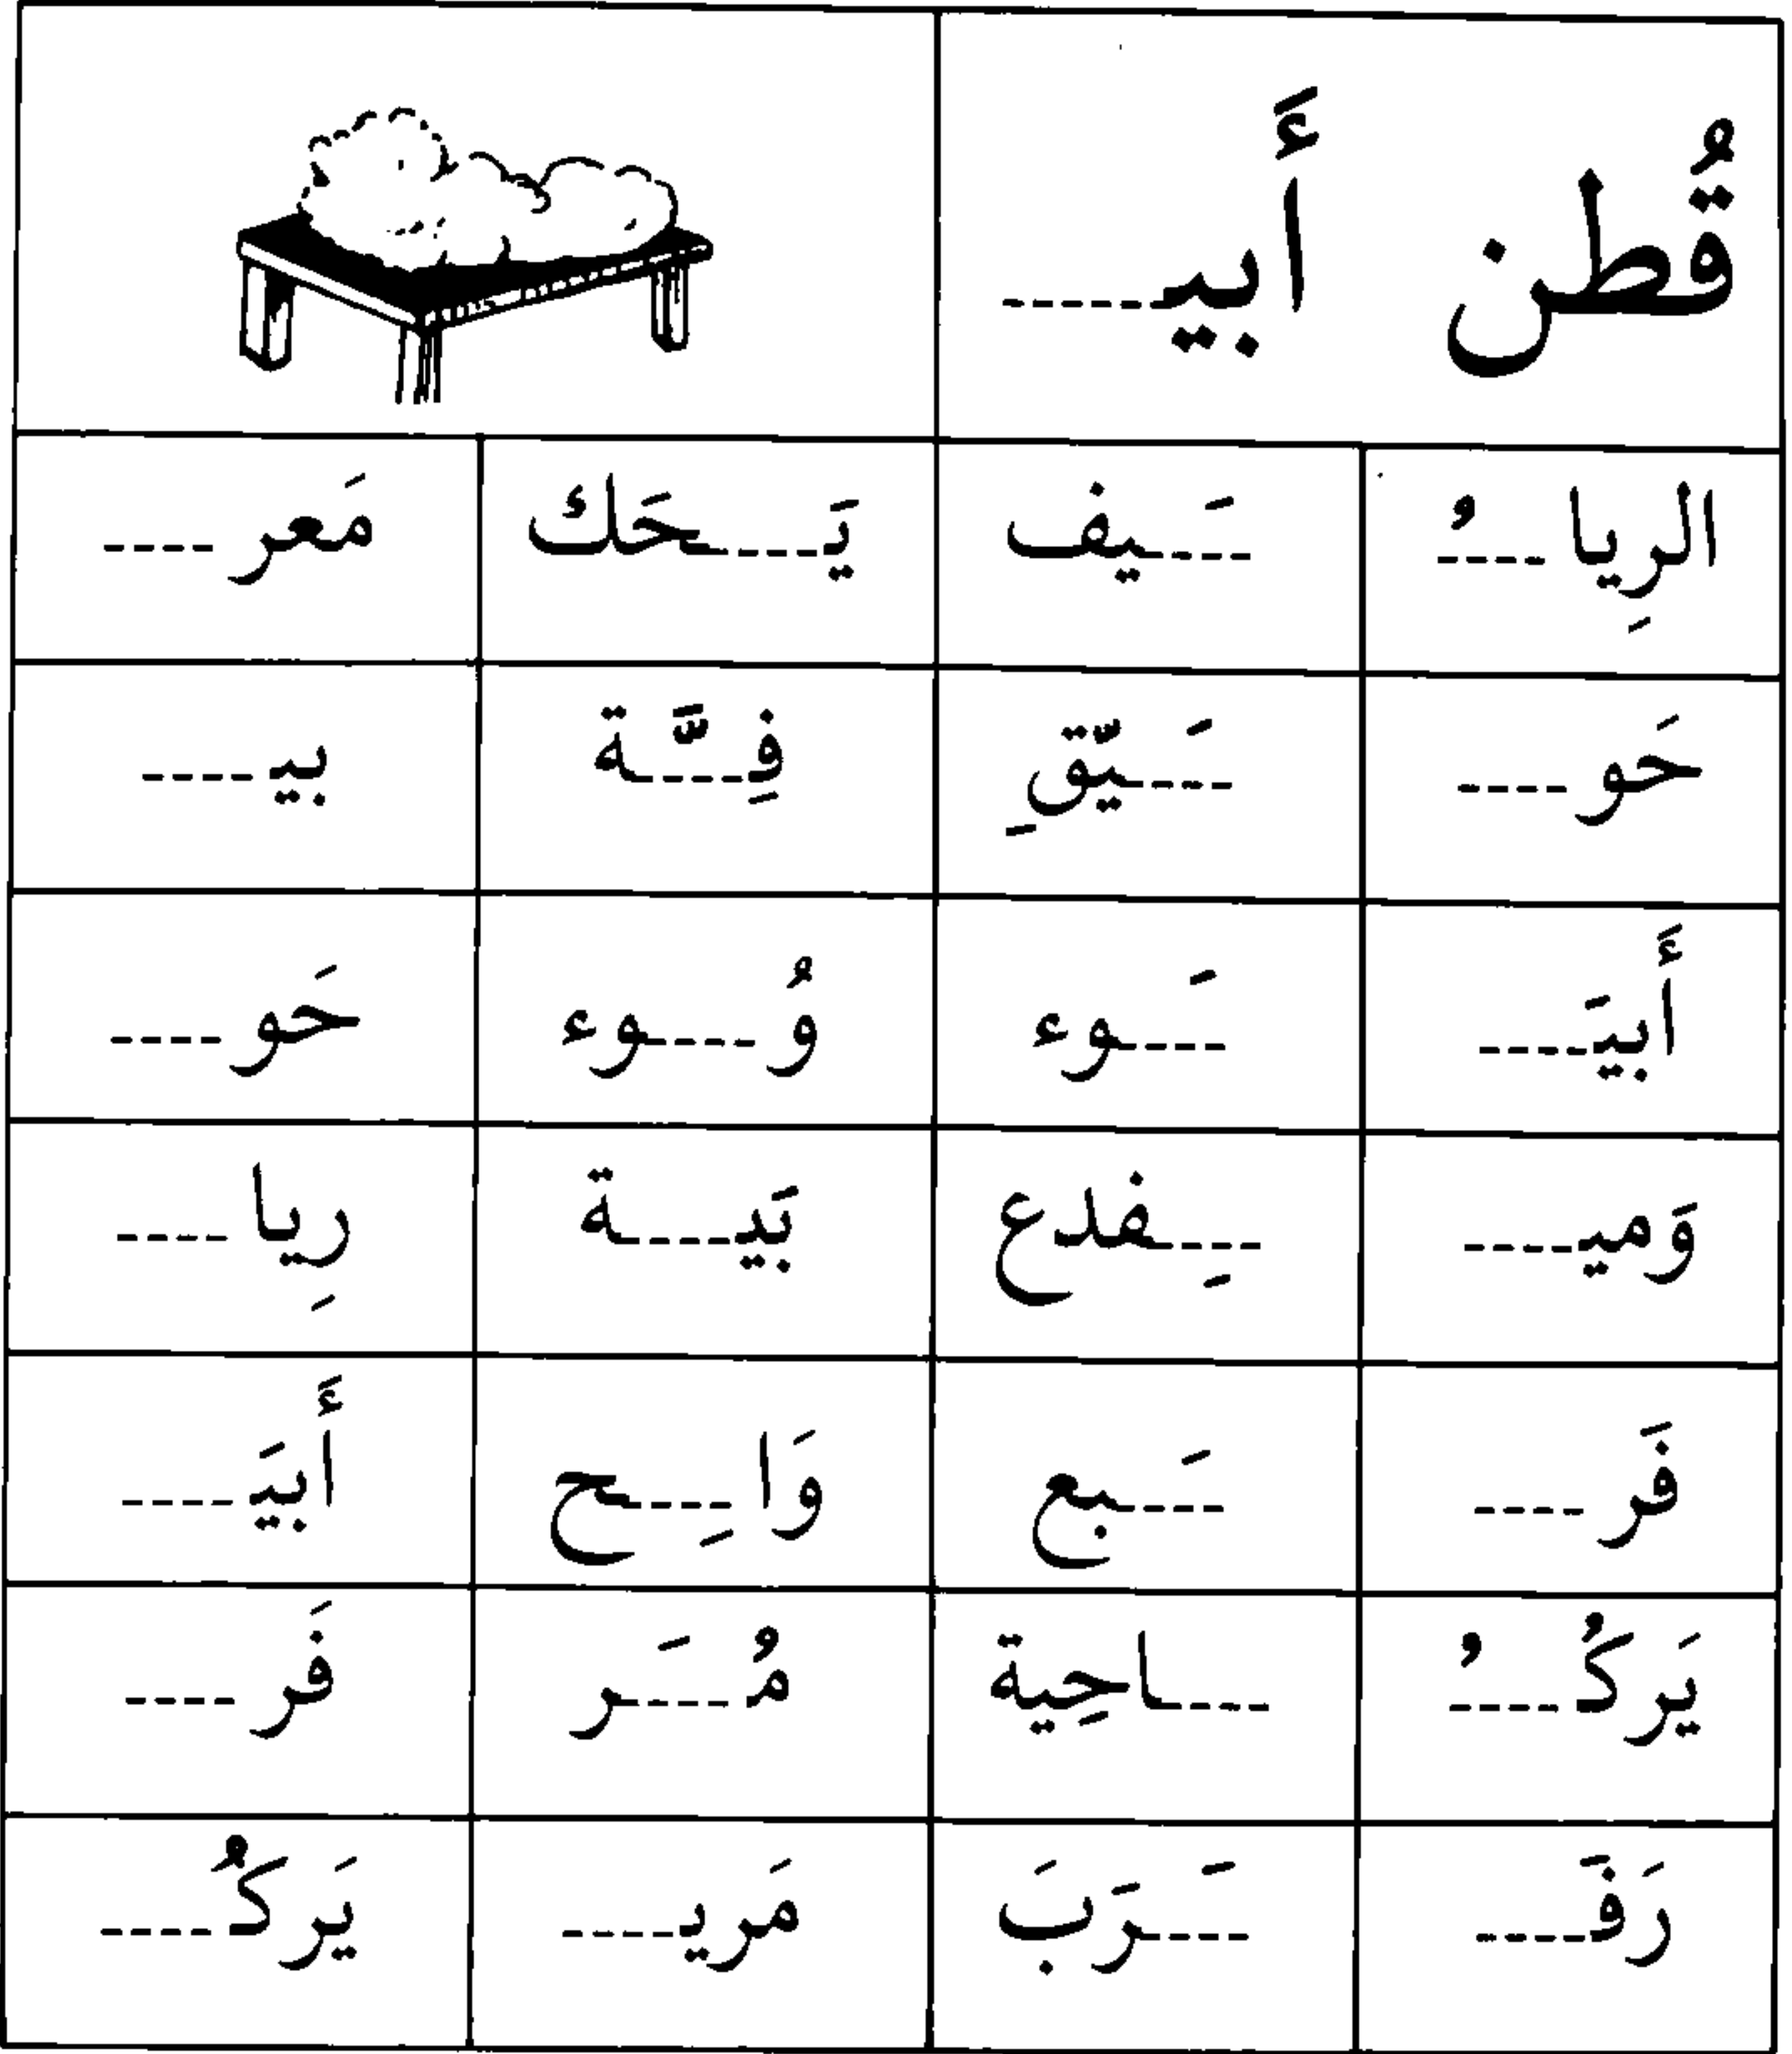 قُطن أَبيـ----
الرِيا----ُ ----َيف يَـ----حَك مَعر----
حَو---- ----َيِّق فِـ----َّة بيـ----
أَبيَـ---- ----َوء وُ----وء حَو----
وَميـ---- ----ِفدع بَيـ----ة رِيا----
فَر---- ----َبع وَا----ِح أَبيَـ----
يَركُـ----ُ ----احِية مُـ----َر فَر----
رَفَـ---- ----َرَبَ مَريـ---- يَركُـ----